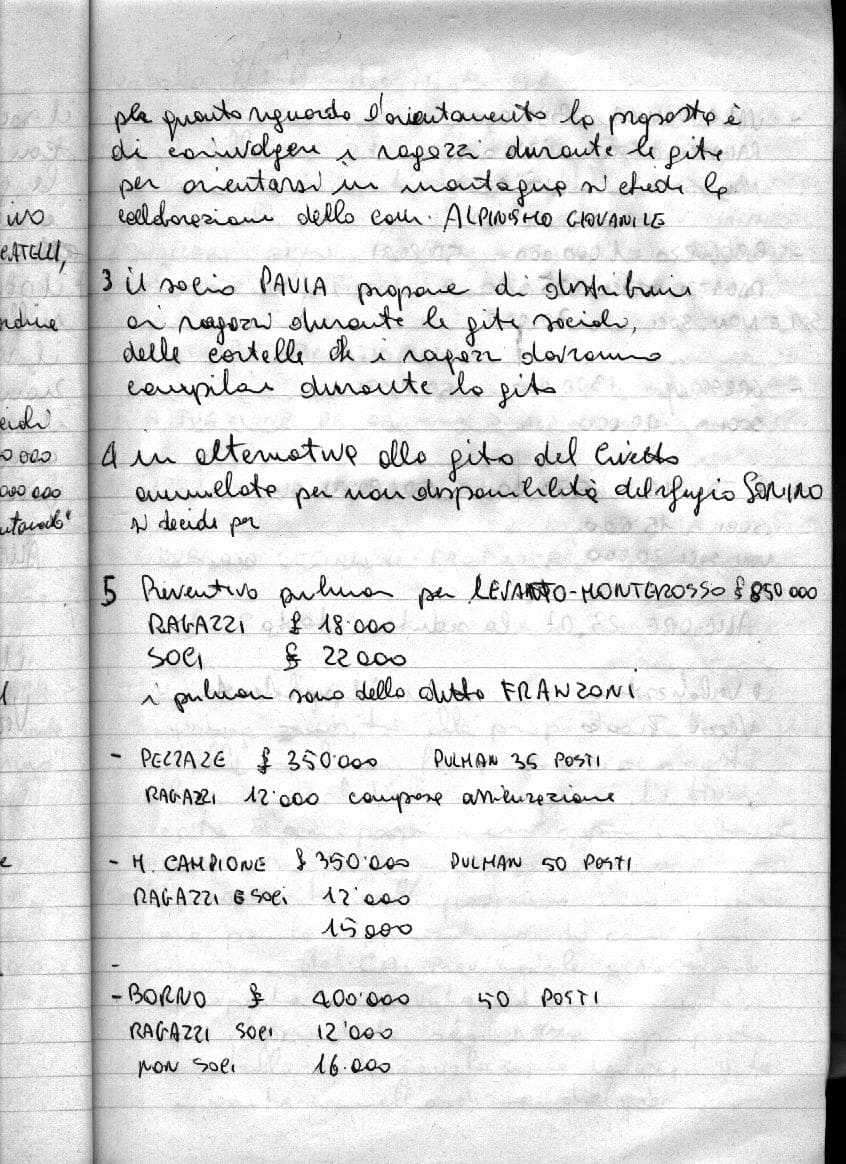 per quanto riguarda l'orientamento la proposta è
di coinvolgere i ragazzi durante le gite
per orientarsi in montagna si chiede la
collaborazione della com. ALPINISMO GIOVANILE
3 il socio PAVIA propone di distribuire
ai ragazzi durante le gite sociali,
delle cartelle che i ragazzi dovranno
compilare durante la gita
4 in alternativa alla gita del Civetta
annullata per non disponibilità del rifugio SONINO
si decide per
5 Preventivo pulman per LEVANTO-MONTEROSSO £ 850 000
RAGAZZI £ 18.000
SOCI £ 22 000
i pulman sono della ditta FRANZONI
- PEZZAZE £ 350.000 PULMAN 35 POSTI
RAGAZZI 12'000 compresa assicurazione
- M. CAMPIONE £ 350'000 PULMAN 50 POSTI
RAGAZZI E SOCI 12'000
15000
-
- BORNO £ 400'000 50 POSTI
RAGAZZI SOCI 12'000
NON SOCI 16.000